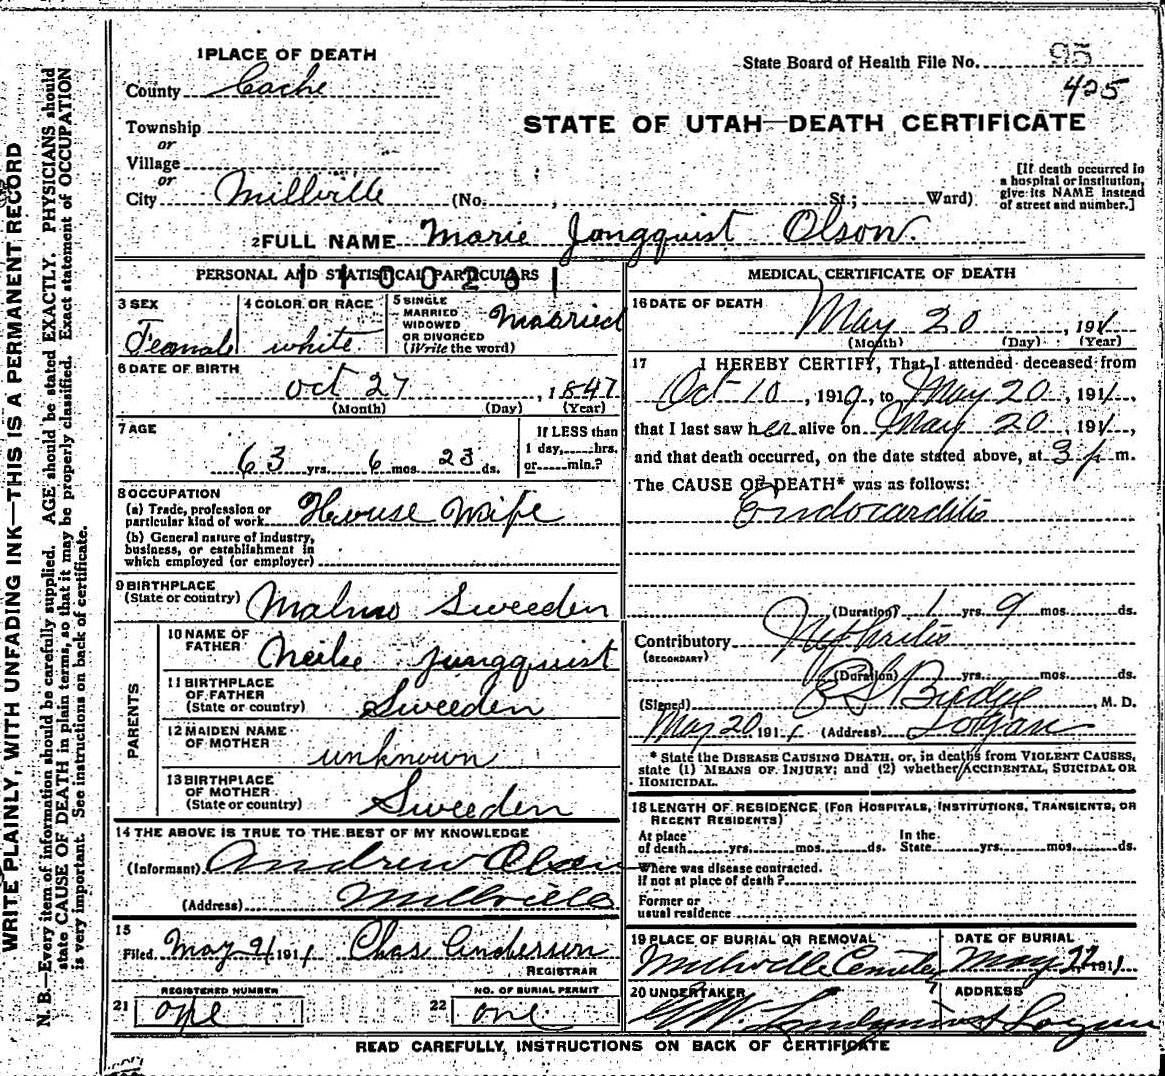 WRITE PLAINLY, WITH UNFADING INK—THIS IS A PERMANENT RECORD
N. B.—Every item of information should be carefully supplied. AGE should be stated EXACTLY. PHYSICIANS should
state CAUSE OF DEATH in plain terms, so that it may be properly classified. Exact statement of OCCUPATION
is very important. See instructions on back of certificate.
1 PLACE OF DEATH
State Board of Health File No. 95
425
County Cache
STATE OF UTAH—DEATH CERTIFICATE
Township
or
Village
or
City Millville (No. , St.; Ward)
[If death occurred in
a hospital or institution,
give its NAME instead
of street and number.]
2 FULL NAME Marie Jongquist Olson.
PERSONAL AND STATISTICAL PARTICULARS
1100261
3 SEX
Female
4 COLOR OR RACE
white
5 SINGLE
MARRIED
WIDOWED
OR DIVORCED
(Write the word)
Married
6 DATE OF BIRTH
Oct 27, 1847
(Month) (Day) (Year)
7 AGE
63 yrs. 6 mos. 23 ds.
If LESS than
1 day, hrs.
or min.?
8 OCCUPATION
(a) Trade, profession or
particular kind of work House Wife
(b) General nature of industry,
business, or establishment in
which employed (or employer)
9 BIRTHPLACE
(State or country) Malmo Sweeden
PARENTS
10 NAME OF
FATHER Jungquist
11 BIRTHPLACE
OF FATHER
(State or country) Sweeden
12 MAIDEN NAME
OF MOTHER unknown
13 BIRTHPLACE
OF MOTHER
(State or country) Sweeden
14 THE ABOVE IS TRUE TO THE BEST OF MY KNOWLEDGE
(Informant) Andrew Olson
(Address) Millville
15
Filed May 21 1911 Chas Anderson
REGISTRAR
21 REGISTERED NUMBER
one
22 NO. OF BURIAL PERMIT
one
MEDICAL CERTIFICATE OF DEATH
16 DATE OF DEATH
May 20, 1911
(Month) (Day) (Year)
17 I HEREBY CERTIFY, That I attended deceased from
Oct 10, 1919, to May 20, 1911,
that I last saw her alive on May 20, 1911,
and that death occurred, on the date stated above, at 3 p m.
The CAUSE OF DEATH* was as follows:
Endocarditis
(Duration) 1 yrs. 9 mos. ds.
Contributory Nephritis
(SECONDARY)
(Duration) yrs. mos. ds.
(Signed) M. D.
May 20 1911 (Address) Logan
* State the DISEASE CAUSING DEATH, or, in deaths from VIOLENT CAUSES,
state (1) MEANS OF INJURY; and (2) whether ACCIDENTAL, SUICIDAL OR
HOMICIDAL.
18 LENGTH OF RESIDENCE (FOR HOSPITALS, INSTITUTIONS, TRANSIENTS, OR
RECENT RESIDENTS)
At place
of death yrs. mos. ds.
In the
State yrs. mos. ds.
Where was disease contracted.
if not at place of death?
Former or
usual residence
19 PLACE OF BURIAL OR REMOVAL
Millville Cemetery
DATE OF BURIAL
May 22 1911
20 UNDERTAKER
ADDRESS
Logan
READ CAREFULLY, INSTRUCTIONS ON BACK OF CERTIFICATE